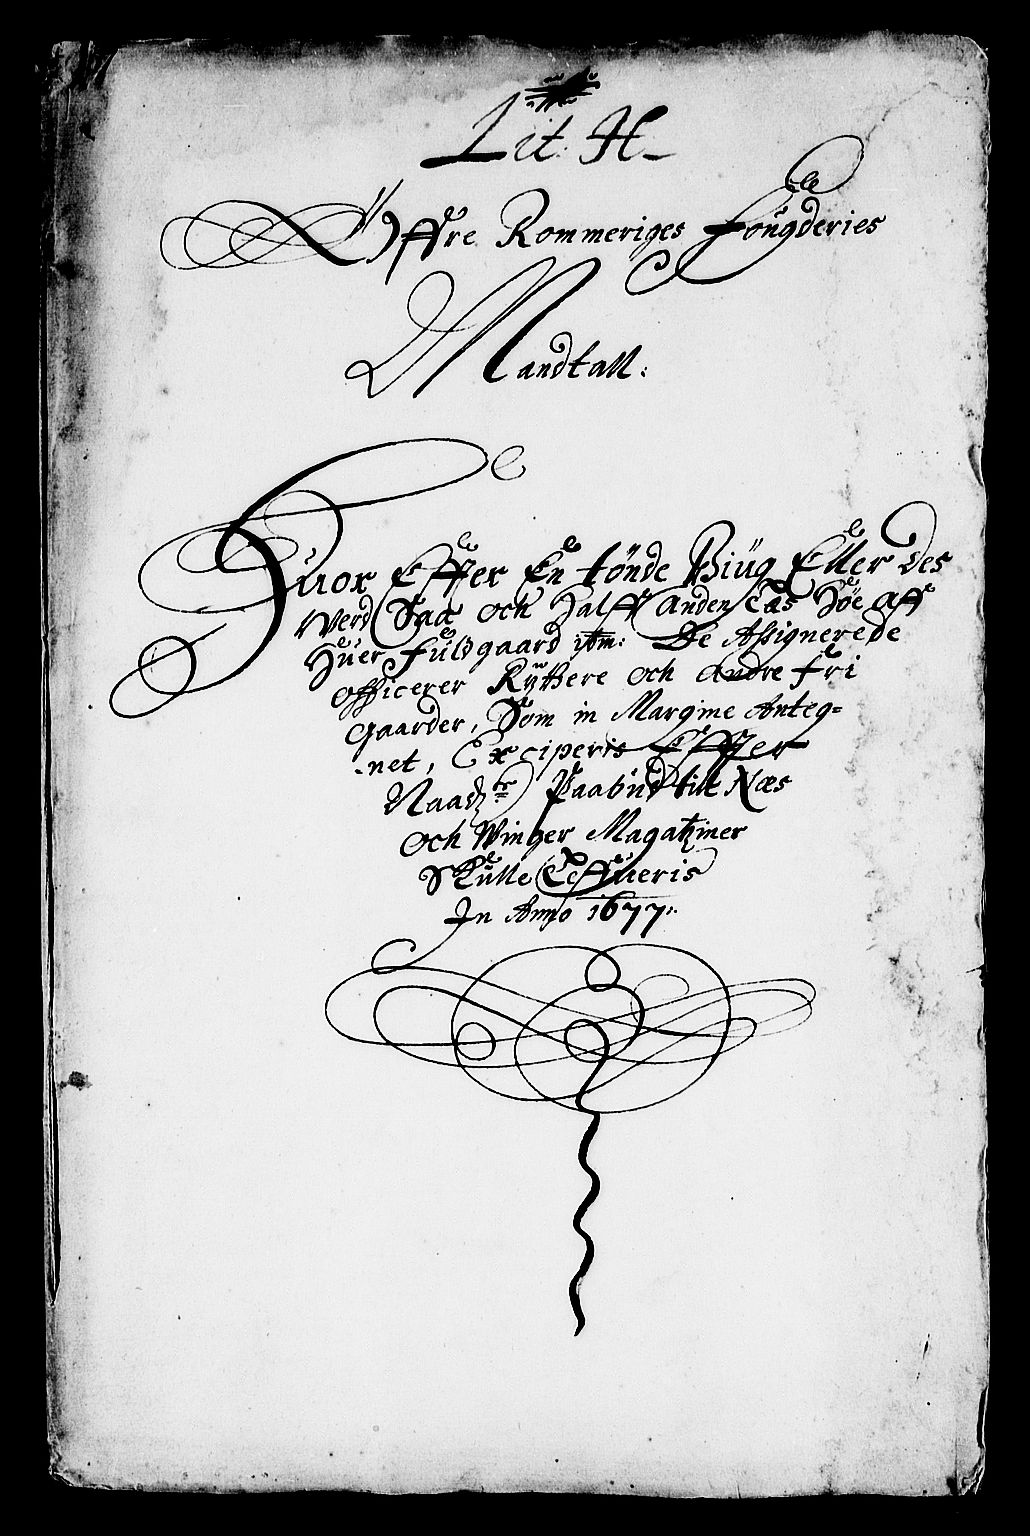 Lit: H
Øffre Rommeriges fougderies
Mandtall:
Huor Effter En tönde Biüg Eller des
Verd Saa och Halff Anden Læs Höe aff
Huer fuldgaard itm: De Assignerede
officerer Ryttere och Andre fri
gaarder, Som in Margine Anteg=
net, Exciperis Effter
Naadr: Paabud till Næs
och Winger Magatziner
Skulle Leffueris
In Anno 1677: